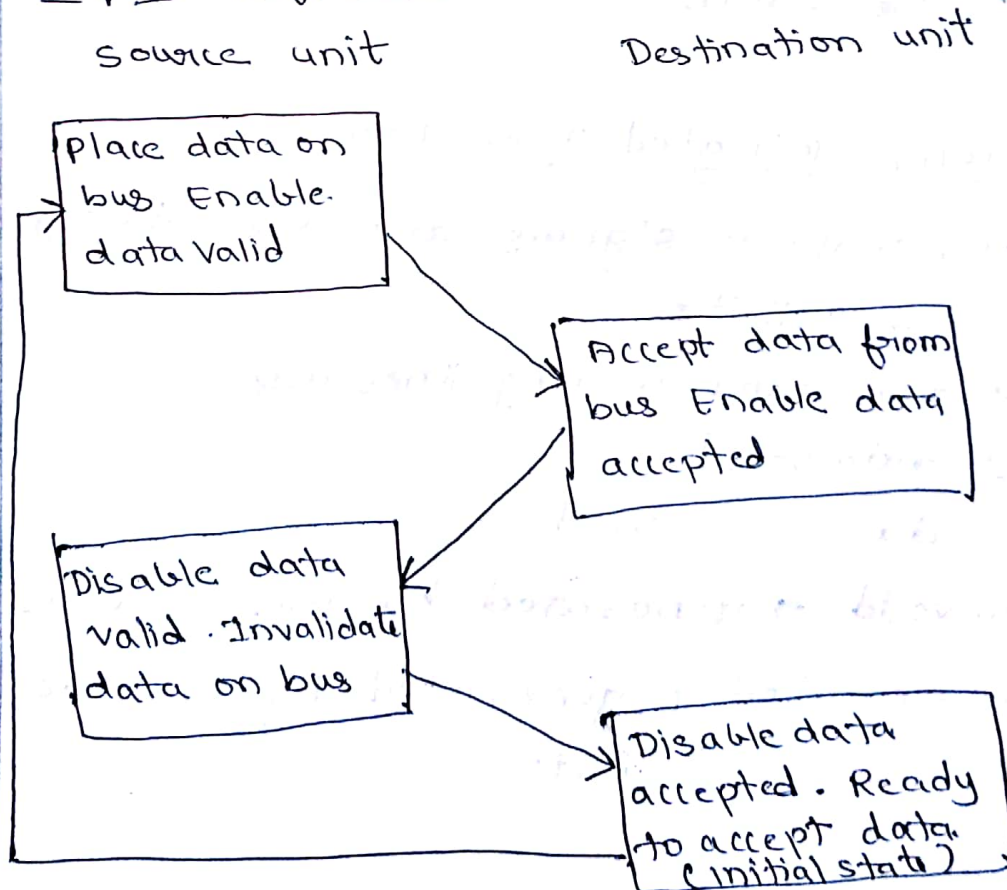 source unit
Destination unit
Place data on
bus Enable.
data valid
Accept data from
bus Enable data
accepted
Disable data
valid. Invalidate
data on bus
Disable data
accepted. Ready
to accept data.
(initial state)